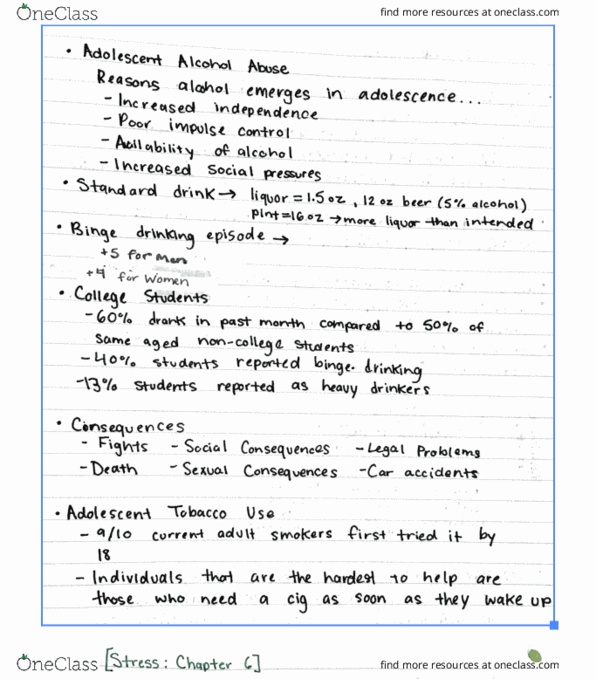 OneClass
find more resources at oneclass.com
• Adolescent Alcohol Abuse
Reasons alcohol emerges in adolescence...
- Increased independence
- Poor impulse control
- Availability of alcohol
- Increased social pressures
• Standard drink → liquor = 1.5 oz, 12 oz beer (5% alcohol)
pint = 16 oz → more liquor than intended
• Binge drinking episode →
+5 for Men
+4 for Women
• College Students
- 60% drank in past month compared to 50% of
same aged non-college students
- 40% students reported binge drinking
- 13% students reported as heavy drinkers
• Consequences
- Fights - Social Consequences - Legal Problems
- Death - Sexual Consequences - Car accidents
• Adolescent Tobacco Use
- 9/10 current adult smokers first tried it by
18
- Individuals that are the hardest to help are
those who need a cig as soon as they wake up
OneClass [Stress: Chapter 6]
find more resources at oneclass.com